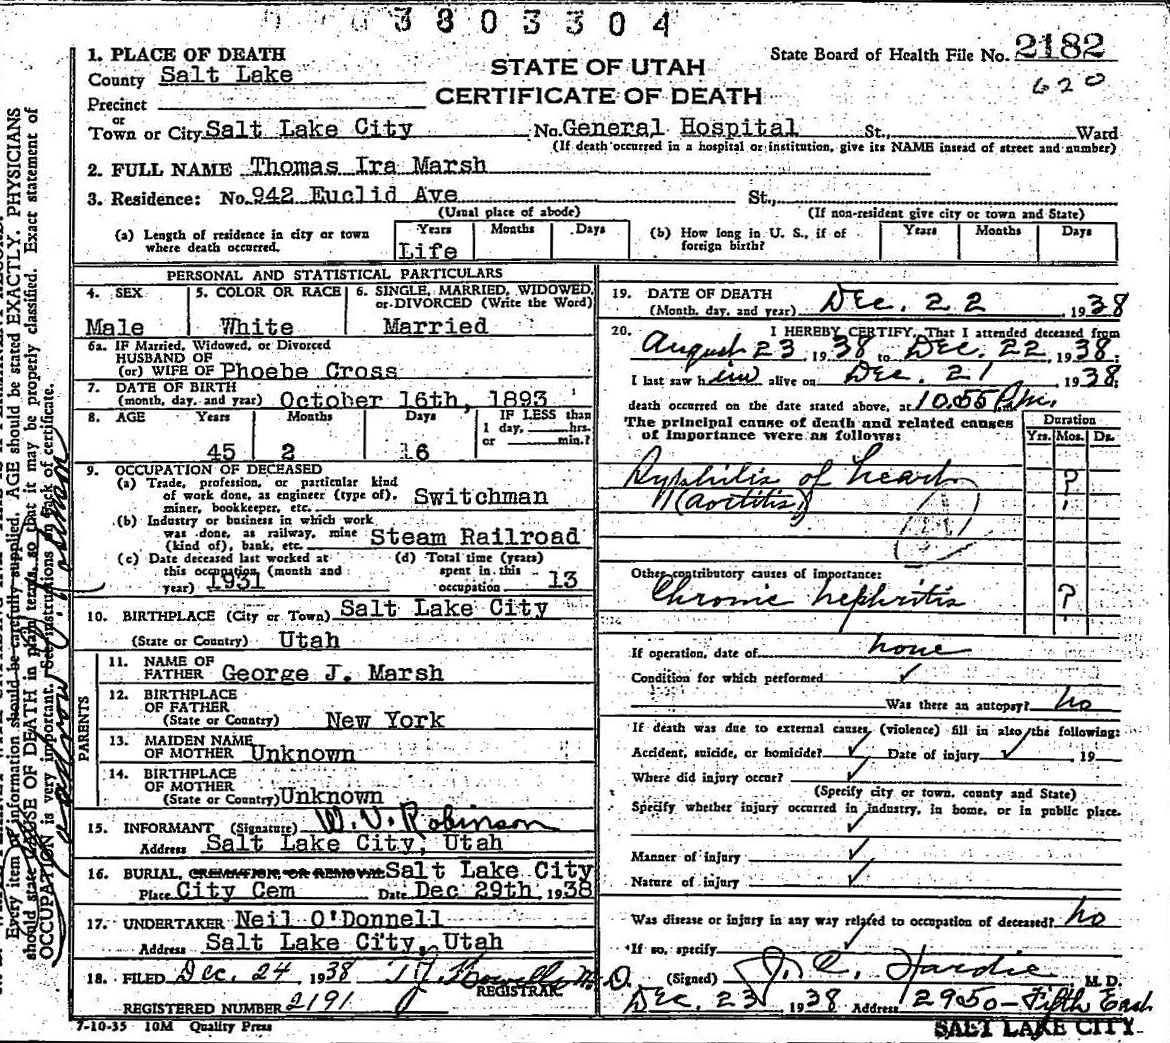 3803304
1. PLACE OF DEATH
State Board of Health File No. 2182
County Salt Lake
STATE OF UTAH
620
Precinct
CERTIFICATE OF DEATH
or
Town or City Salt Lake City No. General Hospital St., Ward
(If death occurred in a hospital or institution, give its NAME instead of street and number)
2. FULL NAME Thomas Ira Marsh
3. Residence: No. 942 Euclid Ave St.,
(Usual place of abode) (If non-resident give city or town and State)
(a) Length of residence in city or town where death occurred. Years Months Days
Life
(b) How long in U. S., if of foreign birth? Years Months Days
PERSONAL AND STATISTICAL PARTICULARS
4. SEX 5. COLOR OR RACE 6. SINGLE, MARRIED, WIDOWED, or DIVORCED (Write the Word)
Male White Married
6a. IF Married, Widowed, or Divorced
HUSBAND OF
(or) WIFE OF Phoebe Cross
7. DATE OF BIRTH
(month, day, and year) October 16th, 1893
8. AGE Years Months Days IF LESS than
1 day, hrs.
or min.?
45 2 16
9. OCCUPATION OF DECEASED
(a) Trade, profession, or particular kind
of work done, as engineer (type of),
miner, bookkeeper, etc. Switchman
(b) Industry or business in which work
was done, as railway, mine
(kind of), bank, etc. Steam Railroad
(c) Date deceased last worked at
this occupation (month and
year) 1931
(d) Total time (years)
spent in this
occupation 13
10. BIRTHPLACE (City or Town) Salt Lake City
(State or Country) Utah
PARENTS
11. NAME OF
FATHER George J. Marsh
12. BIRTHPLACE
OF FATHER
(State or Country) New York
13. MAIDEN NAME
OF MOTHER Unknown
14. BIRTHPLACE
OF MOTHER
(State or Country) Unknown
15. INFORMANT (Signature) W. V. Robinson
Address Salt Lake City, Utah
16. BURIAL, CREMATION, OR REMOVAL Salt Lake City
Place City Cem Date Dec 29th 1938
17. UNDERTAKER Neil O'Donnell
Address Salt Lake City, Utah
18. FILED Dec. 24 1938
REGISTRAR
REGISTERED NUMBER 2191
7-10-35 10M Quality Press
19. DATE OF DEATH
(Month, day, and year) Dec. 22 1938
20. I HEREBY CERTIFY, That I attended deceased from
August 23, 1938 to Dec. 22, 1938;
I last saw him alive on Dec. 21 1938;
death occurred on the date stated above, at 10.55 P.m.
The principal cause of death and related causes
of importance were as follows:
Duration
Yrs. Mos. Ds.
Syphilis of heart ?
(aortitis)
Other contributory causes of importance:
Chronic nephritis ?
If operation, date of none
Condition for which performed ✓
Was there an autopsy? no
If death was due to external causes, (violence) fill in also the following:
Accident, suicide, or homicide? ✓ Date of injury ✓ 19
Where did injury occur? ✓
(Specify city or town, county and State)
Specify whether injury occurred in industry, in home, or in public place.
✓
Manner of injury ✓
Nature of injury ✓
Was disease or injury in any way related to occupation of deceased? no
If so, specify ✓
(Signed) J. C. Hardie M. D.
Dec. 23 1938 Address 2950 - Fifth East
SALT LAKE CITY
Every item of information should be carefully supplied. AGE should be stated EXACTLY. PHYSICIANS
should state CAUSE OF DEATH in plain terms, so that it may be properly classified. Exact statement of
OCCUPATION is very important. See instructions on back of certificate.